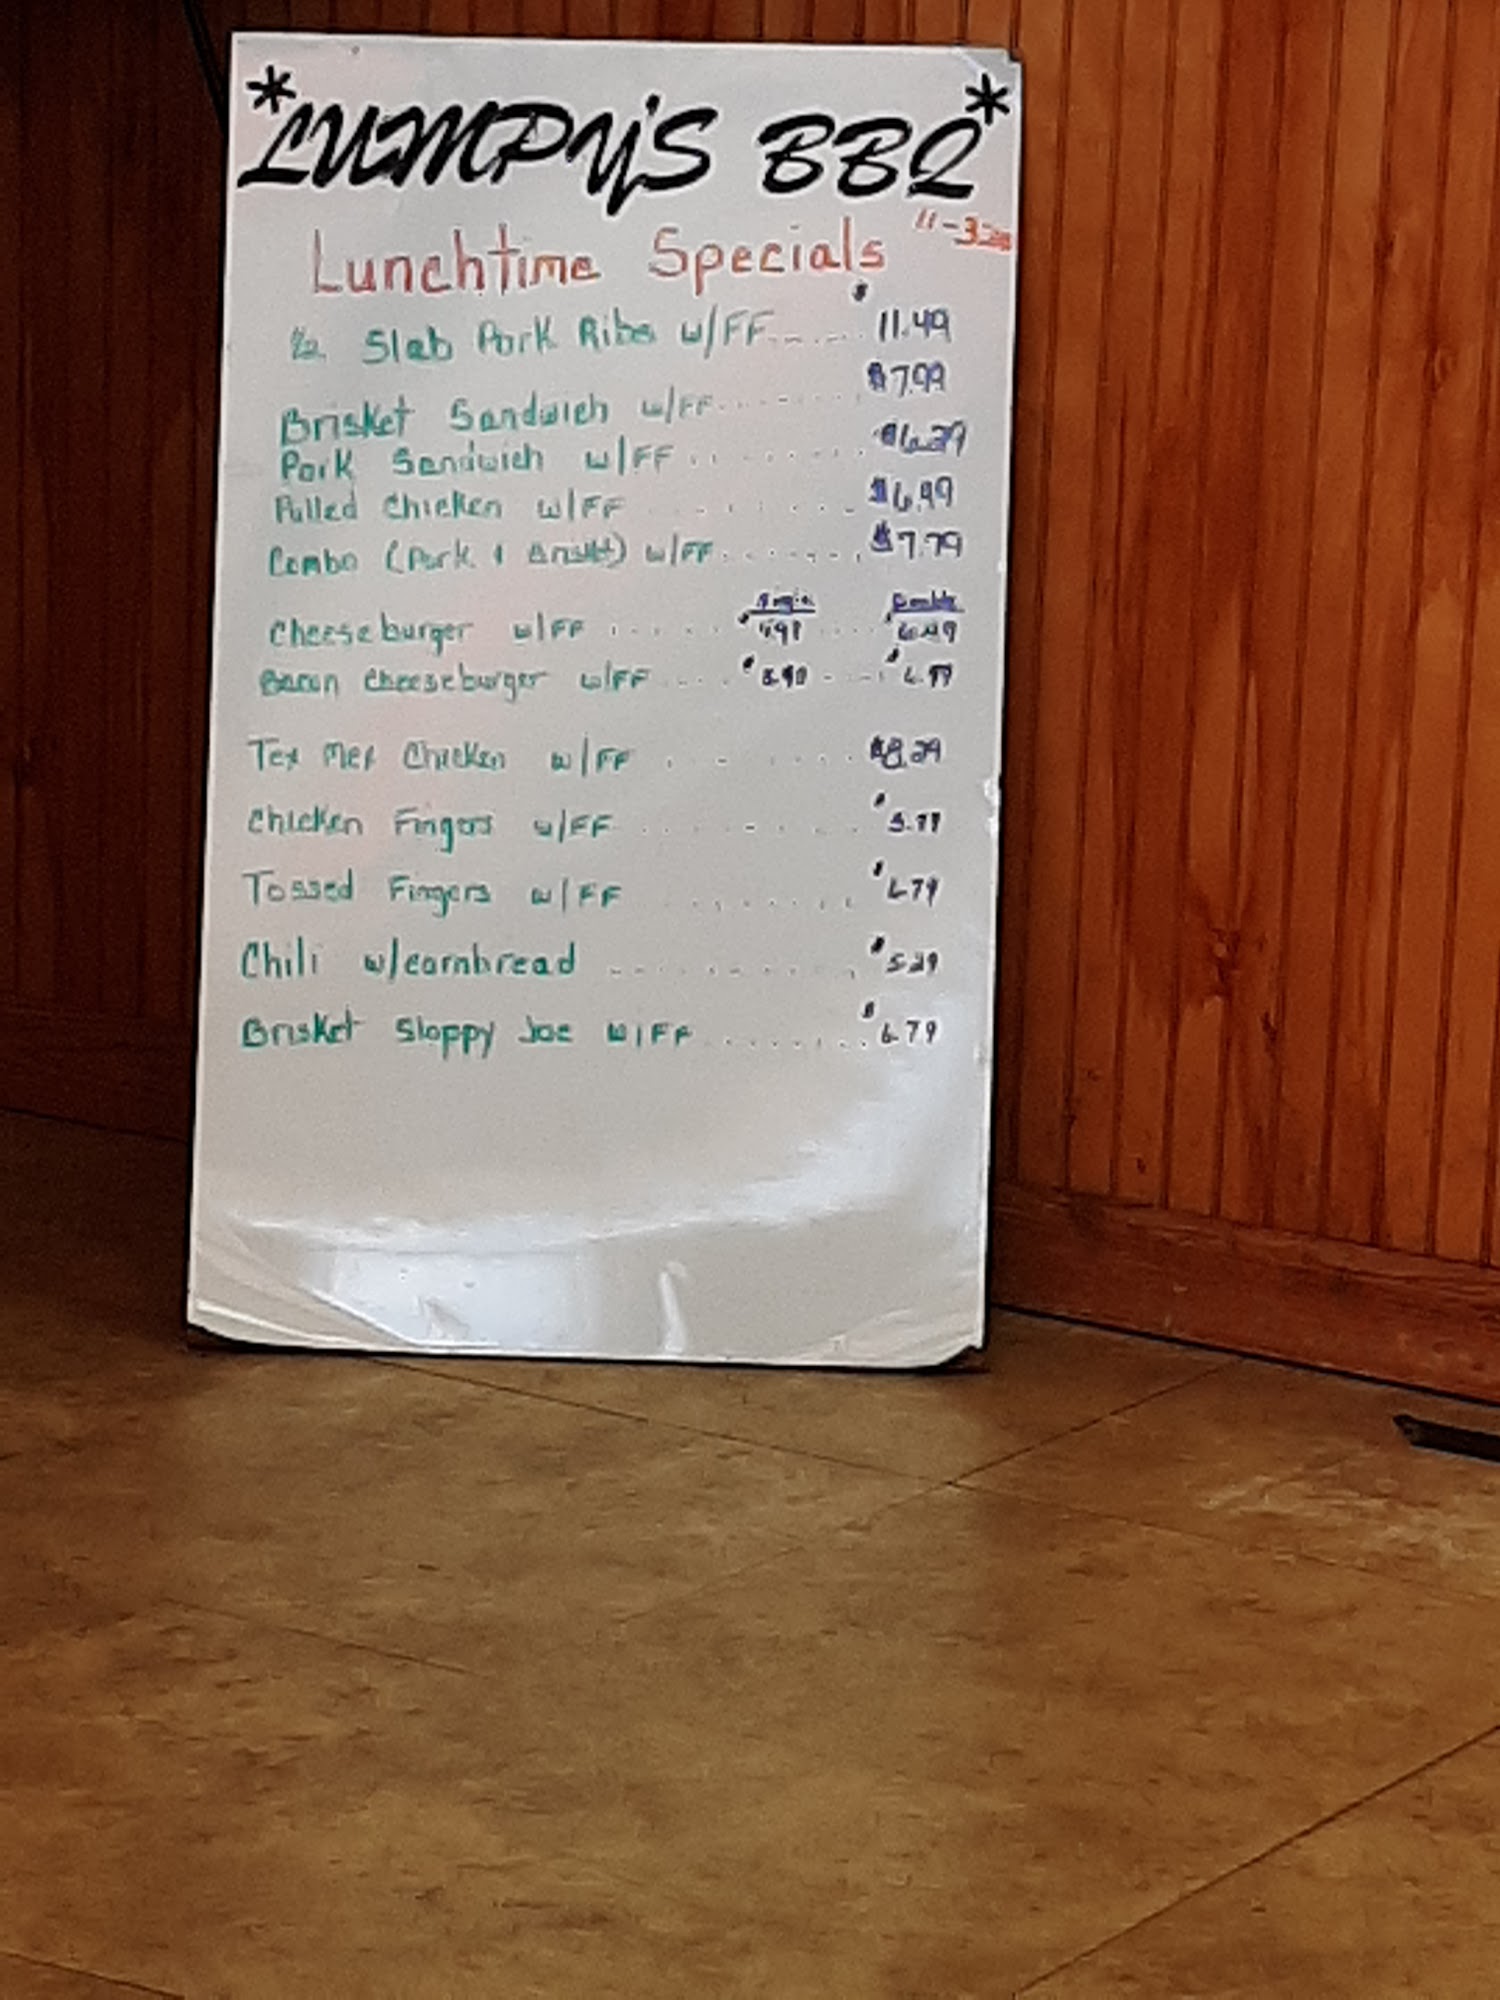 *LUMPY'S BBQ*
Lunchtime Specials 11-3
1/2 Slab Pork Ribs w/FF...... $11.49
Brisket Sandwich w/FF........ $7.99
Pork Sandwich w/FF.......... $6.29
Pulled Chicken w/FF......... $6.99
Combo (Pork & Brisket) w/FF....... $7.79
Single Double
Cheeseburger w/FF
Bacon Cheeseburger w/FF
Tex Mex Chicken w/FF....... $8.29
Chicken Fingers w/FF
Tossed Fingers w/FF........ $6.79
Chili w/cornbread.......... $5.29
Brisket Sloppy Joe w/FF........ $6.79